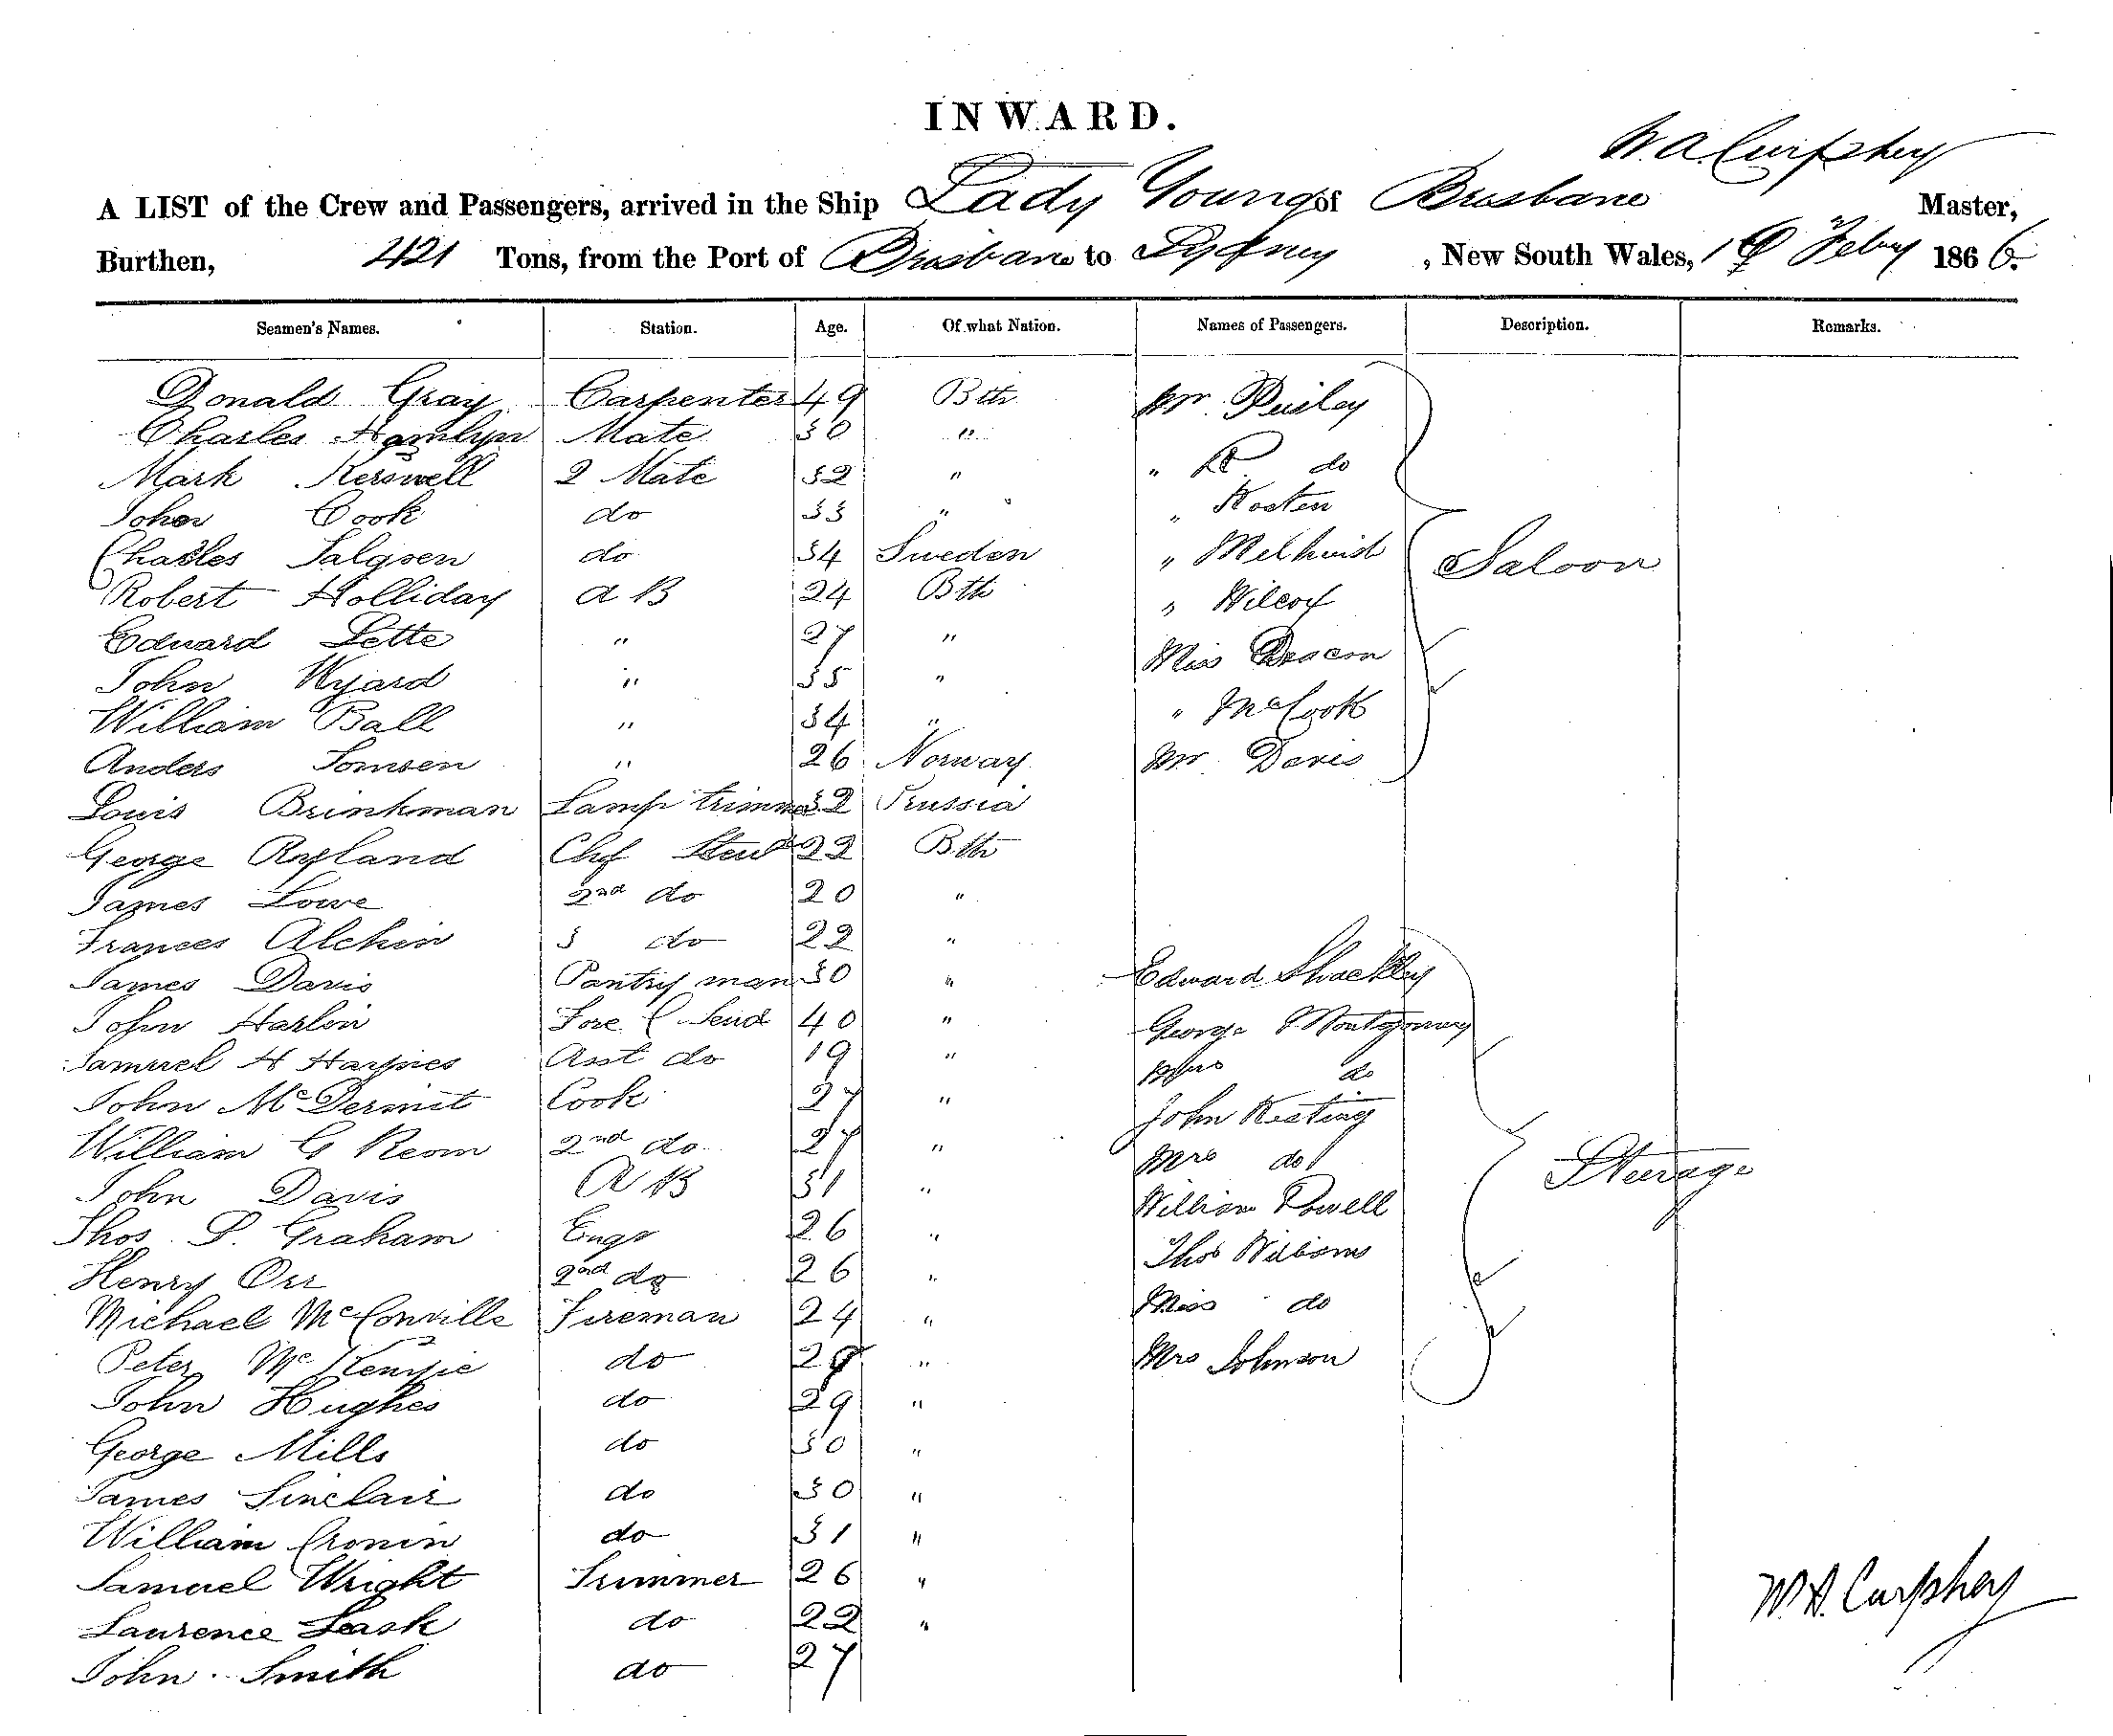 INWARD.
W.A. Curphey
A LIST of the Crew and Passengers, arrived in the Ship Lady Young of Brisbane Master,
Burthen, 421 Tons, from the Port of Brisbane to Sydney , New South Wales, Feby 1866.
Seamen's Names. Station. Age. Of what Nation. Names of Passengers. Description. Remarks.
Donald Gray Carpenter 49 Bth Mr
Charles Hamlyn Mate 30 "
Mark Kerswell 2 Mate 32 " " R do
John Cook do 33 " "
Charles Salgoen do 34 Sweden " Melhuish Saloon
Robert Holliday A B 24 Bth " Wilcox
Edward Lette " 27 " Miss Deacon
John Wyard " 35 "
William Ball " 34 " " McCook
Anders Tomsen " 26 Norway Mr Davis
Louis Brinkman Lamp trimmer 32 Prussia
George Ryland Chf Stewd 22 Bth
James Lowe 2nd do 20 "
Frances Alchin 3 do 22 "
James Davis Pantry man 30 " Edward Shackley
John Harlin Fore C Send 40 " George Montgomery
Samuel H Haynes Asst do 19 " Mrs do
John McDermit Cook 27 " John Keating
William G Reom 2nd do 27 " Mrs do
John Davis A B 31 " William Powell Steerage
Thos P. Graham Engr 26 " Thos Williams
Henry Orr 2nd do 26 " Miss do
Michael McConville Fireman 24 "
Peter McKenzie do 29 " Mrs Johnson
John Hughes do 29 "
George Mills do 30 "
James Sinclair do 30 "
William Cronin do 31 "
Samuel Wright Trimmer 26 "
Laurence Leask do 22 "
John Smith do 27
W.A. Curphey